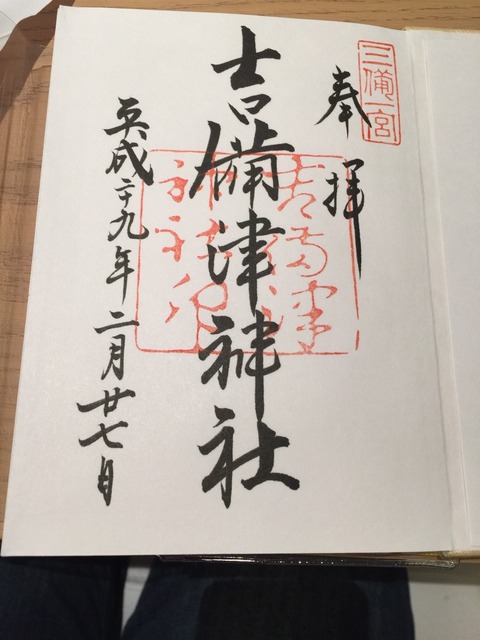 三備一宮
奉拝
吉備津神社
吉備津
神社印
平成二十九年二月廿七日